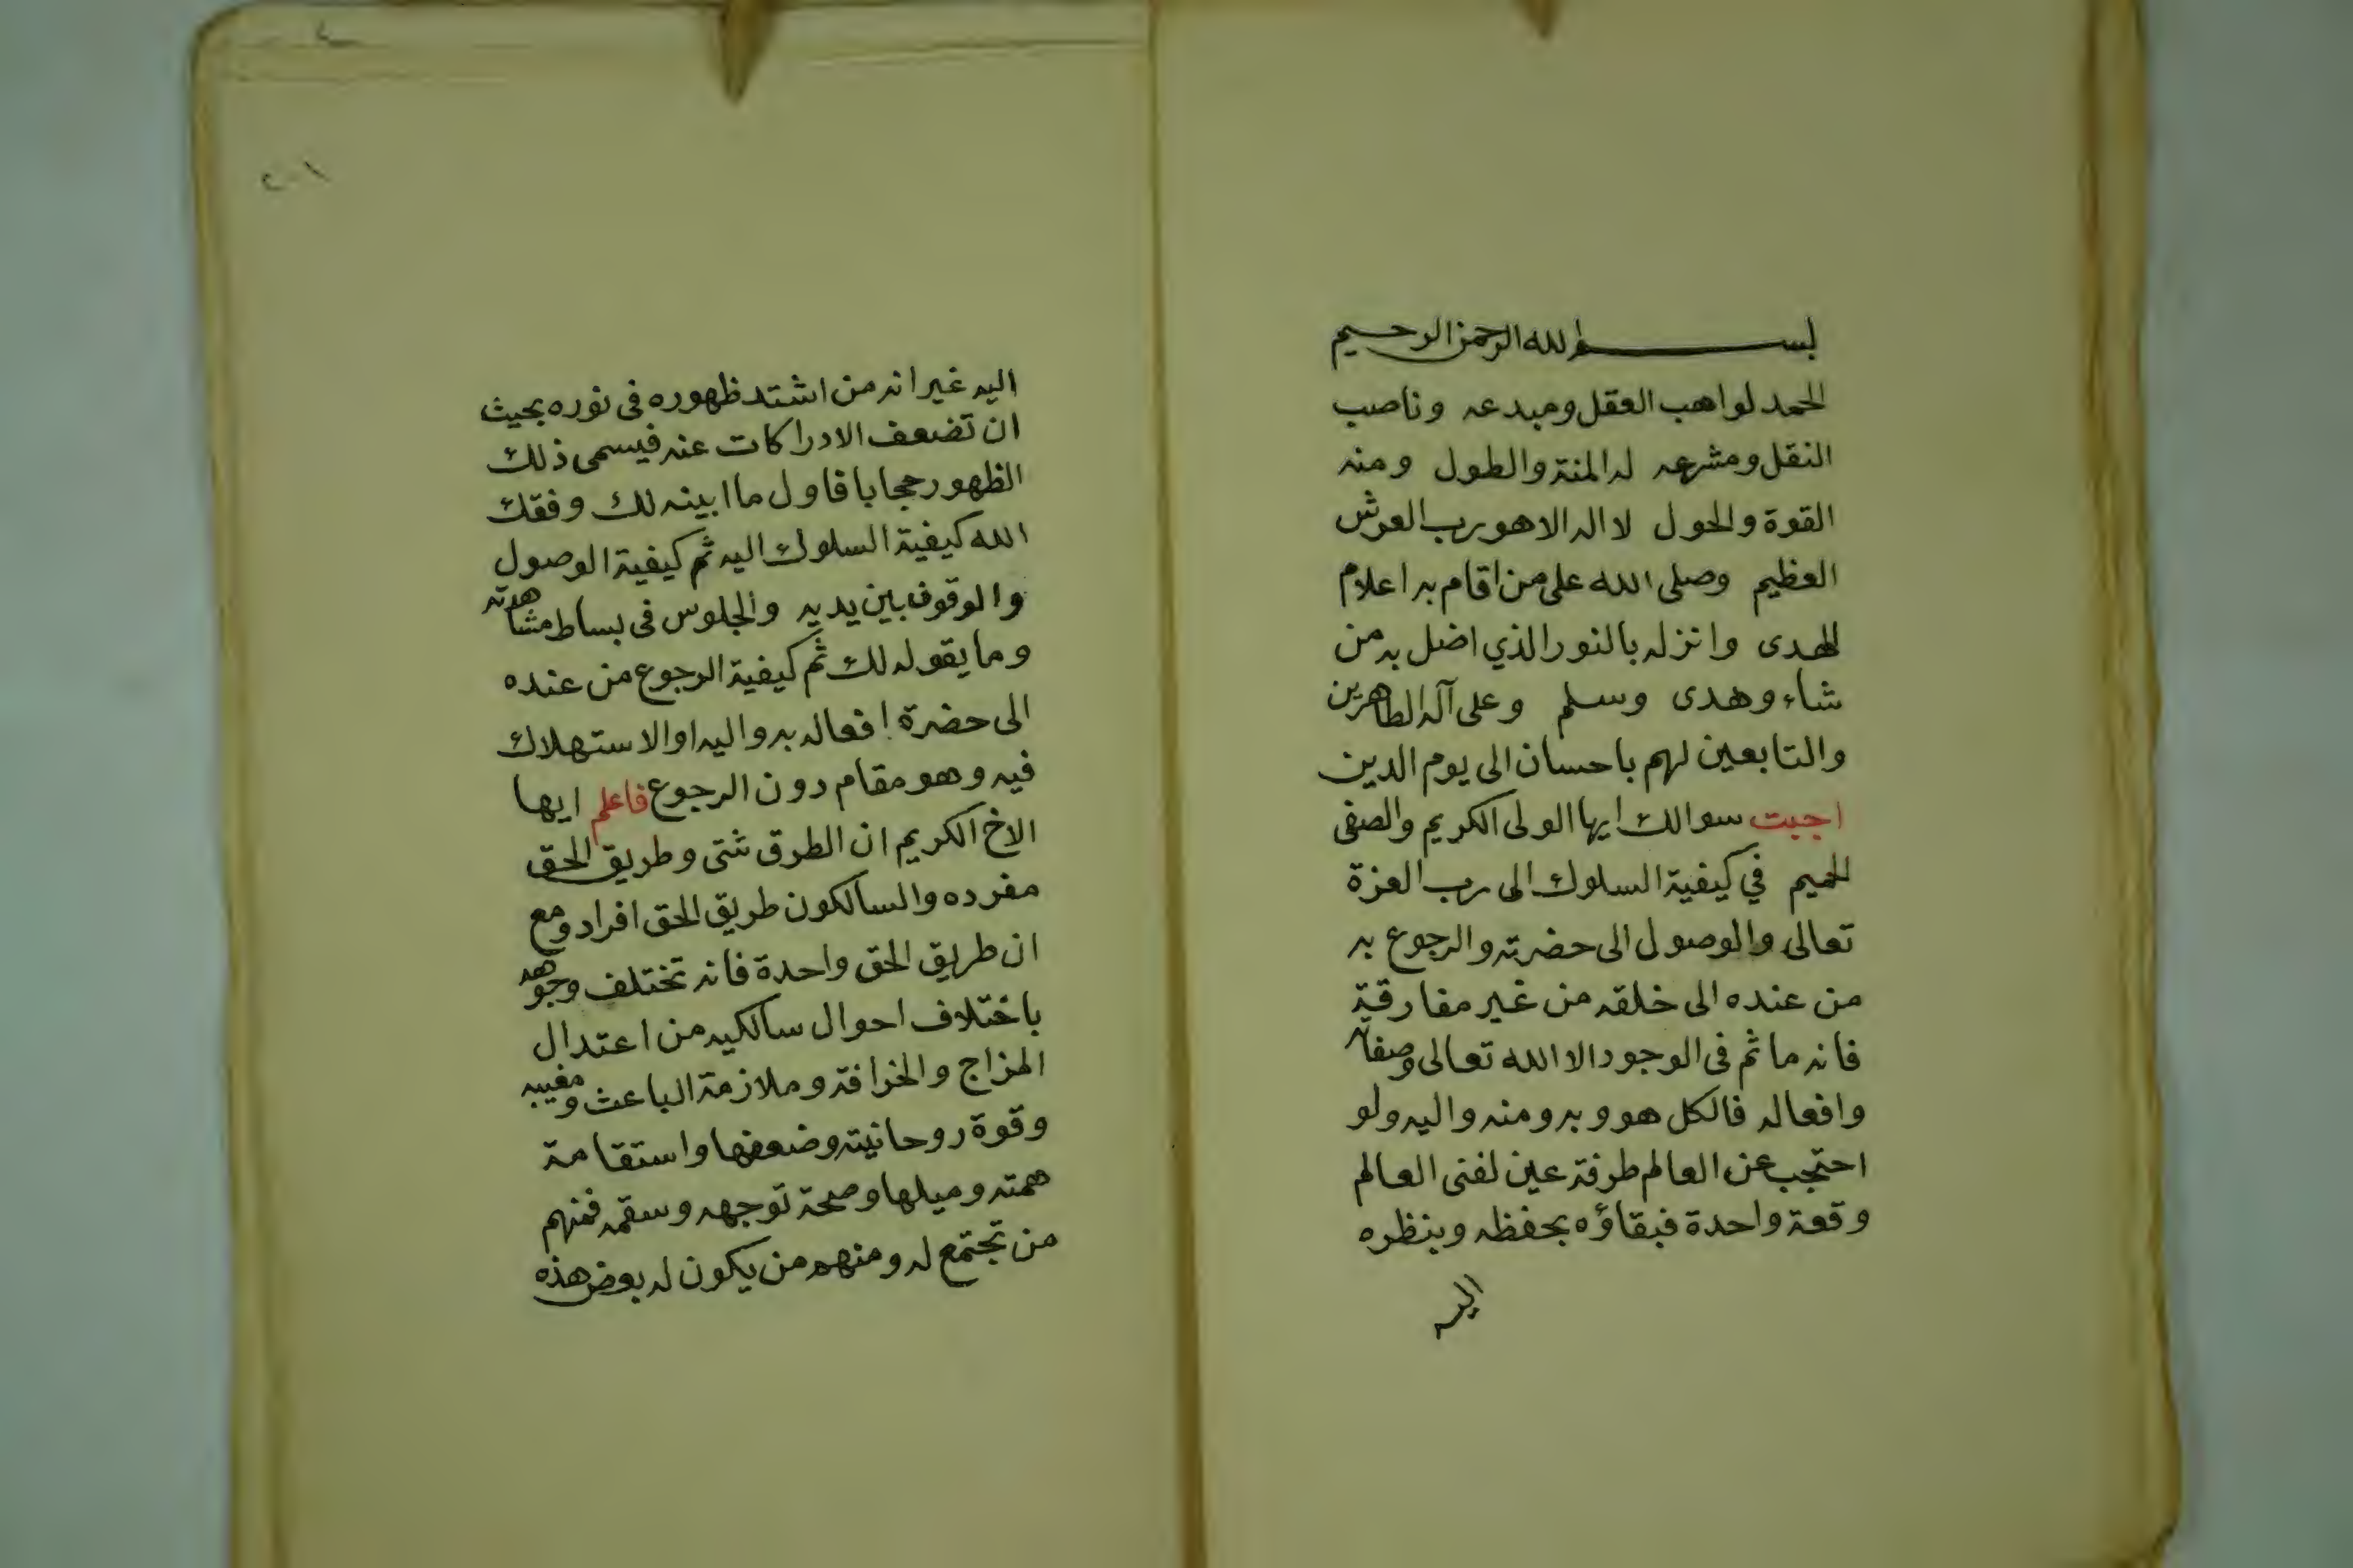 بسم الله الرحمن الرحيم
الحمد لواهب العقل ومبدعه وناصب
النقل ومشرعه له المنة والطول ومنه
القوة والحول لا اله الا هو رب العرش
العظيم وصلى الله على من اقام به اعلام
الهدى وانزله بالنور الذي اضل به من
شاء وهدى وسلم وعلى آله الطاهرين
والتابعين لهم باحسان الى يوم الدين
اجبت سوالك ايها الولى الكريم والصفى
الحميم في كيفية السلوك الى رب العزة
تعالى والوصول الى حضرته والرجوع به
من عنده الى خلقه من غير مفارقة
فانه ما ثم فى الوجود الا الله تعالى وصفاته
وافعاله فالكل هو وبه ومنه واليه ولو
احتجب عن العالم طرفة عين لفنى العالم
وقعة واحدة فبقاؤه بحفظه وبنظره
اليه
٢٠١
اليه غير انه من اشتد ظهوره فى نوره بحيث
ان تضعف الادراكات عنه فيسمى ذلك
الظهور حجابا فاول ما ابينه لك وفقك
الله كيفية السلوك اليه ثم كيفية الوصول
والوقوف بين يديه والجلوس فى بساط مشاهدته
وما يقوله لك ثم كيفية الرجوع من عنده
الى حضرة افعاله به واليه او الاستهلاك
فيه وهو مقام دون الرجوع فاعلم ايها
الاخ الكريم ان الطرق شتى وطريق الحق
مفرده والسالكون طريق الحق افراد ومع
ان طريق الحق واحدة فانه تختلف وجوهه
باختلاف احوال سالكيه من اعتدال
المزاج والخرافة وملازمة الباعث ومغيبه
وقوة روحانيته وضعفها واستقامة
همته وميلها وصحة توجهه وسقمه فمنهم
من تجتمع له ومنهم من يكون له بعض هذه